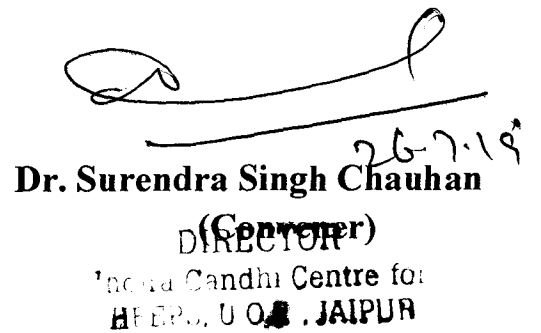 26.7.18
Dr. Surendra Singh Chauhan
(Convener)
DIRECTOR
Indira Gandhi Centre for
HEEPS, U O , JAIPUR